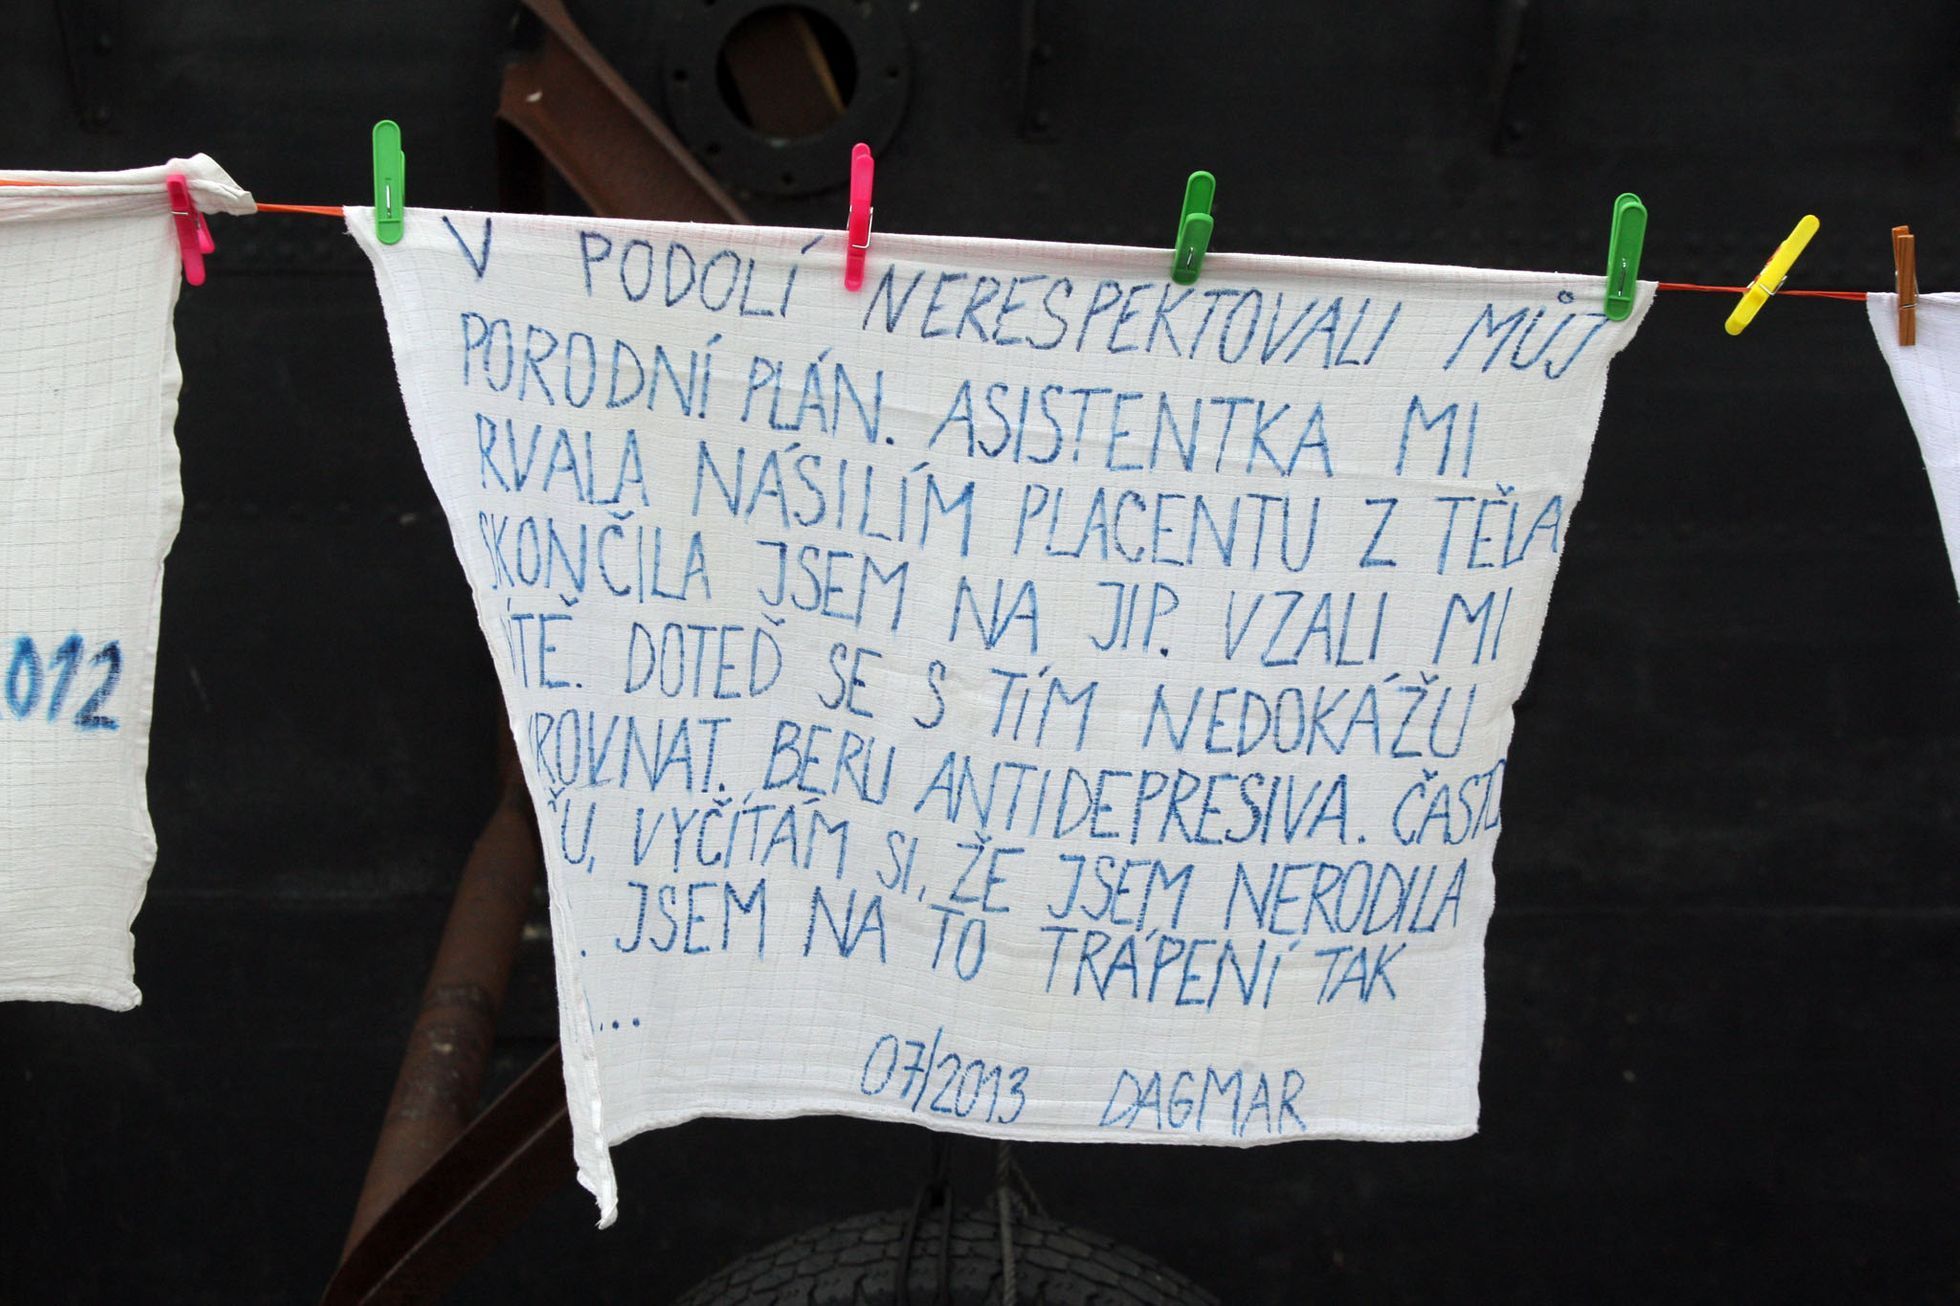 2012
V PODOLÍ NERESPEKTOVALI MŮJ
PORODNÍ PLÁN. ASISTENTKA MI
RVALA NÁSILÍM PLACENTU Z TĚLA
SKONČILA JSEM NA JIP. VZALI MI
DOTEĎ SE S TÍM NEDOKÁŽU
BERU ANTIDEPRESIVA. ČASTO
VYČÍTÁM SI, ŽE JSEM NERODILA
JSEM NA TO TRÁPENÍ TAK
...
07/2013 DAGMAR